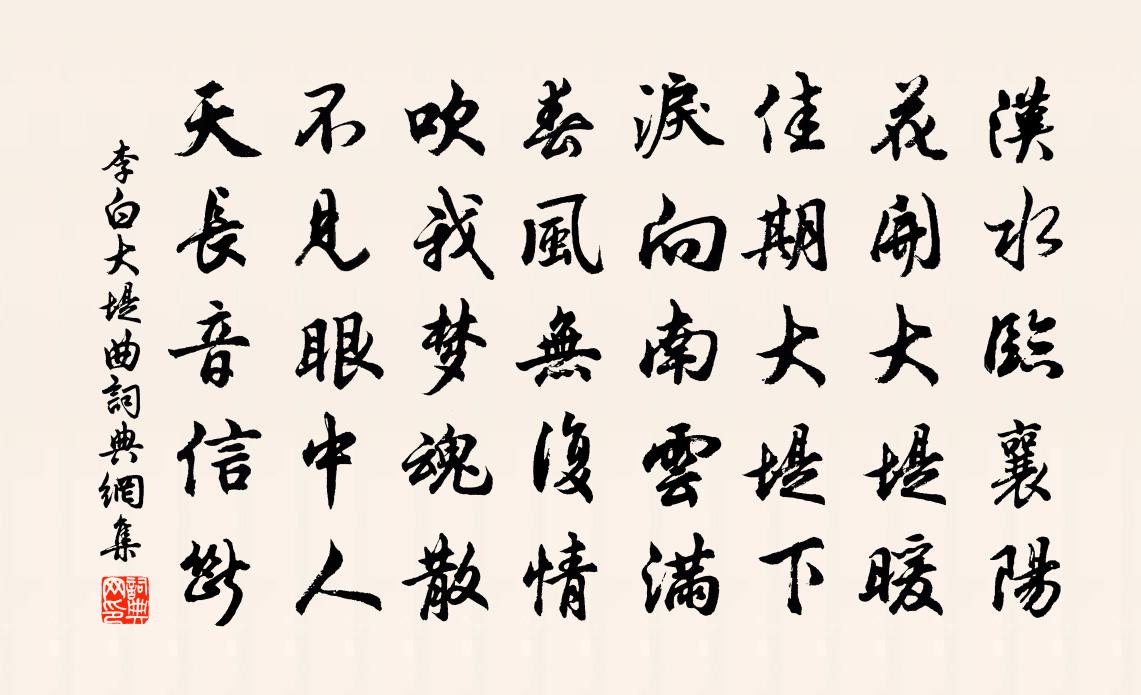 漢水臨襄陽
花開大堤暖
佳期大堤下
淚向南雲滿
春風無復情
吹我梦魂散
不見眼中人
天長音信斷
李白大堤曲詞典網集
詞典網印